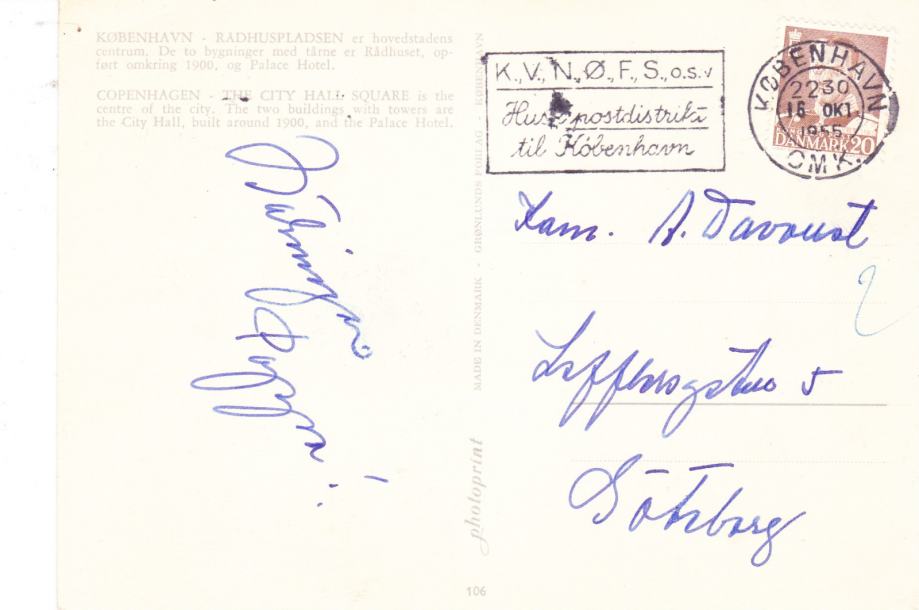 KØBENHAVN - RADHUSPLADSEN er hovedstadens
centrum. De to bygninger med tårne er Rådhuset, op-
ført omkring 1900, og Palace Hotel.
COPENHAGEN - THE CITY HALL SQUARE is the
centre of the city. The two buildings with towers are
the City Hall, built around 1900, and the Palace Hotel.
MADE IN DENMARK . GRØNLUNDS FORLAG . KØBENHAVN
photoprint
106
K., V., N., Ø., F., S., o.s.v
Husk postdistrikt
til København
KØBENHAVN
2230
16 OKT.
1955
OMK.
DANMARK 20
Kam. A. Davoust
5
Göteborg